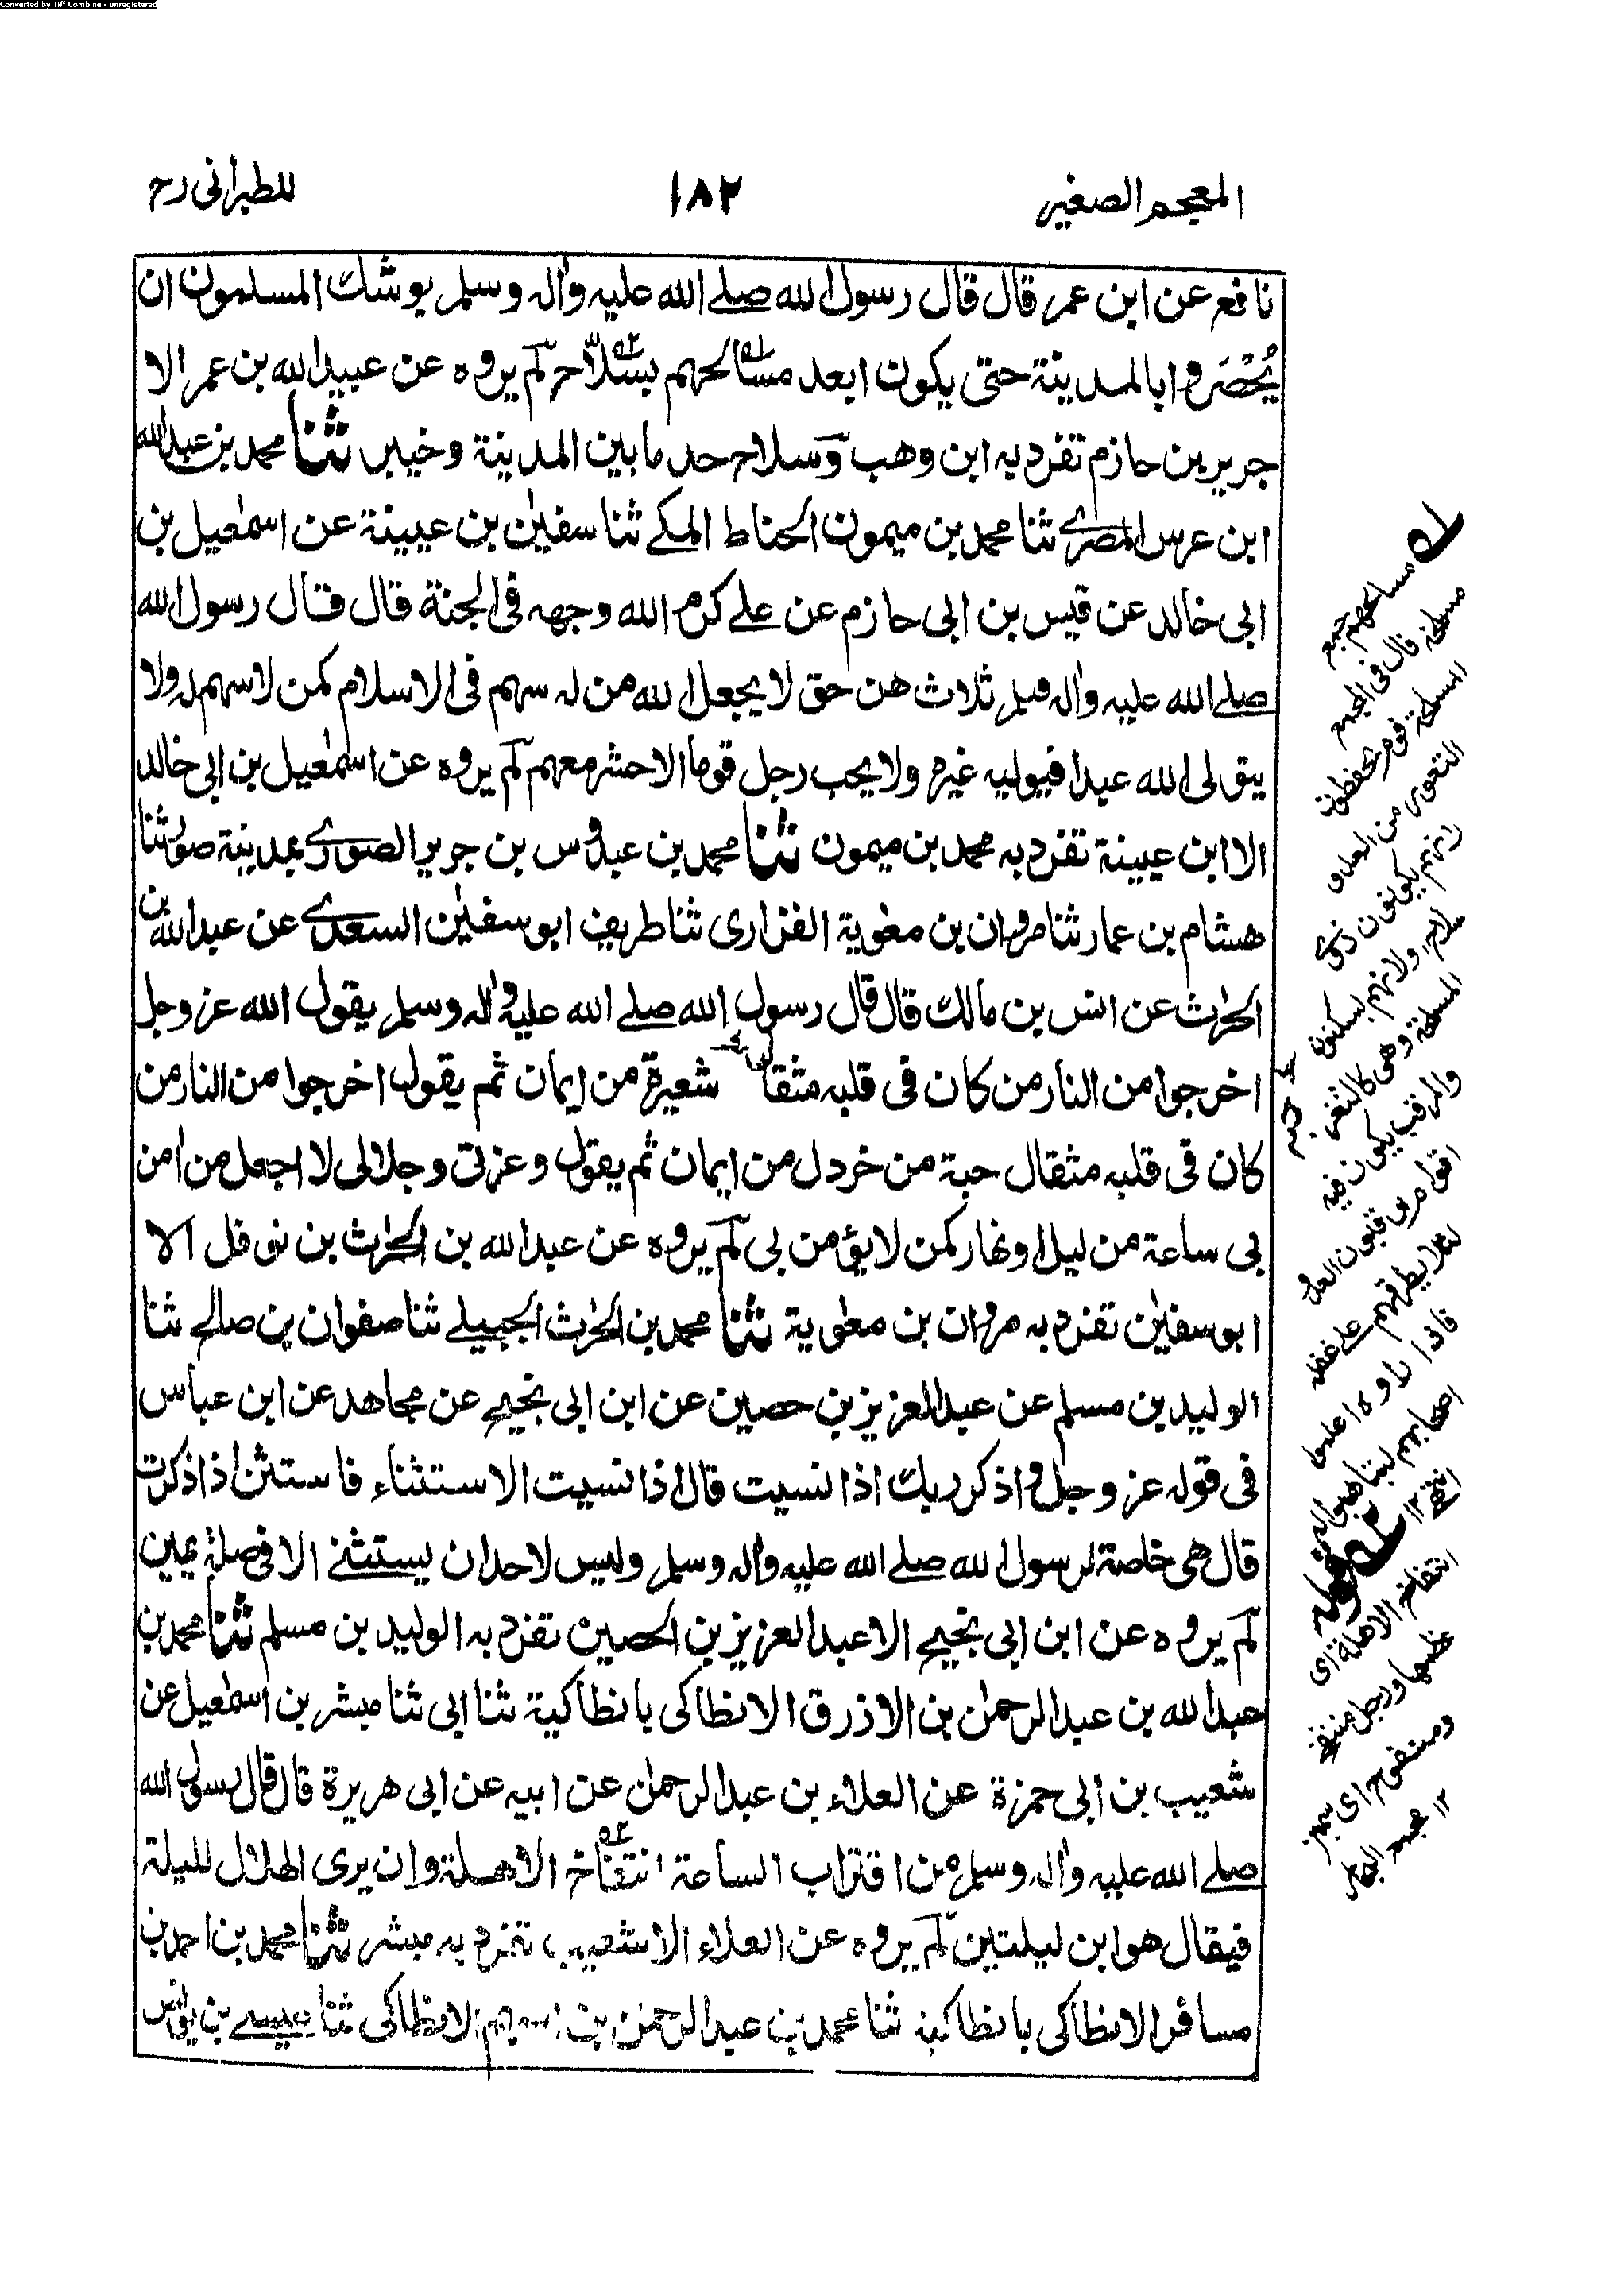 Converted by Tiff Combine - unregistered
المعجم الصغير ١٨٢ للطبرانى رح
نافع عن ابن عمر قال قال رسول الله صلے الله عليه واله وسلم يوشك المسلمون ان
يُحْصَروا بالمدينة حتى يكون ابعد مسالحهم بسلاح لم يروه عن عبيد الله بن عمر الا
جرير بن حازم تفرد به ابن وهب وسلاح حد ما بين المدينة وخيبر ثنا محمد بن عبد الله
ابن عرس المصرے ثنا محمد بن ميمون الحناط المكے ثنا سفين بن عيينة عن اسمعيل بن
ابى خالد عن قيس بن ابى حازم عن علے كرم الله وجهه فى الجنة قال قال رسول الله
صلے الله عليه واله وسلم ثلاث هن حق لا يجعل الله من له سهم فى الاسلام كمن لا سهم له ولا
يتولى الله عبدا فيوليه غيره ولا يحب رجل قوما الا حشر معهم لم يروه عن اسمعيل بن ابى خالد
الا ابن عيينة تفرد به محمد بن ميمون ثنا محمد بن عبدوس بن جرير الصورے بمدينة صور ثنا
هشام بن عمار ثنا مروان بن معوية الفزارى ثنا طريف ابو سفين السعدے عن عبد الله بن
الحرث عن انس بن مالك قال قال رسول الله صلے الله عليه واله وسلم يقول الله عز وجل
اخرجوا من النار من كان فى قلبه مثقال شعيرة من ايمان ثم يقول اخرجوا من النار من
كان فى قلبه مثقال حبة من خردل من ايمان ثم يقول وعزتى وجلالى لا اجعل من امن
بى ساعة من ليل او نهار كمن لا يؤمن بى لم يروه عن عبد الله بن الحرث بن نوفل الا
ابو سفين تفرد به مروان بن معوية ثنا محمد بن الحرث الجبيلے ثنا صفوان بن صالح ثنا
الوليد بن مسلم عن عبد العزيز بن حصين عن ابن ابى نجيح عن مجاهد عن ابن عباس
فى قوله عز وجل واذكر ربك اذا نسيت قال اذا نسيت الاستثناء فاستثن اذا ذكرت
قال هى خاصة لرسول الله صلے الله عليه واله وسلم وليس لاحد ان يستثنے الا فى صلة يمين
لم يروه عن ابن ابى نجيح الا عبد العزيز بن الحصين تفرد به الوليد بن مسلم ثنا محمد بن
عبد الله بن عبد الرحمن بن الازرق الانطاكى بانطاكية ثنا ابى ثنا مبشر بن اسمعيل عن
شعيب بن ابى حمزة عن العلاء بن عبد الرحمن عن ابيه عن ابى هريرة قال قال رسول الله
صلے الله عليه واله وسلم من اقتراب الساعة انتفاخ الاهلة وان يرى الهلال لليلة
فيقال هو ابن ليلتين لم يروه عن العلاء الا شعيب تفرد به مبشر ثنا محمد بن احمد بن
مسافر الانطاكى بانطاكية ثنا محمد بن عبد الرحمن بن سهم الانطاكى ثنا عيسے بن يونس
مسالحهم جمع
مسلحة قال فى المجمع
المسلحة قوم يحفظون
الثغور من العدو
لانهم يكونون ذوے
سلاح ولانهم يسكنون
المسلحة وهى كالثغر
والمرقب يكون فيه
اقوام يرقبون العدو
لئلا يطرقهم علے غفلة
فاذا راوه اعلموا
اصحابهم ليتاهبوا له
انتهے ١٢
قوله
انتفاخ الاهلة اى
عظمها ورجل منتفخ
ومنفوخ اى سمين
١٢ مجمع البحار